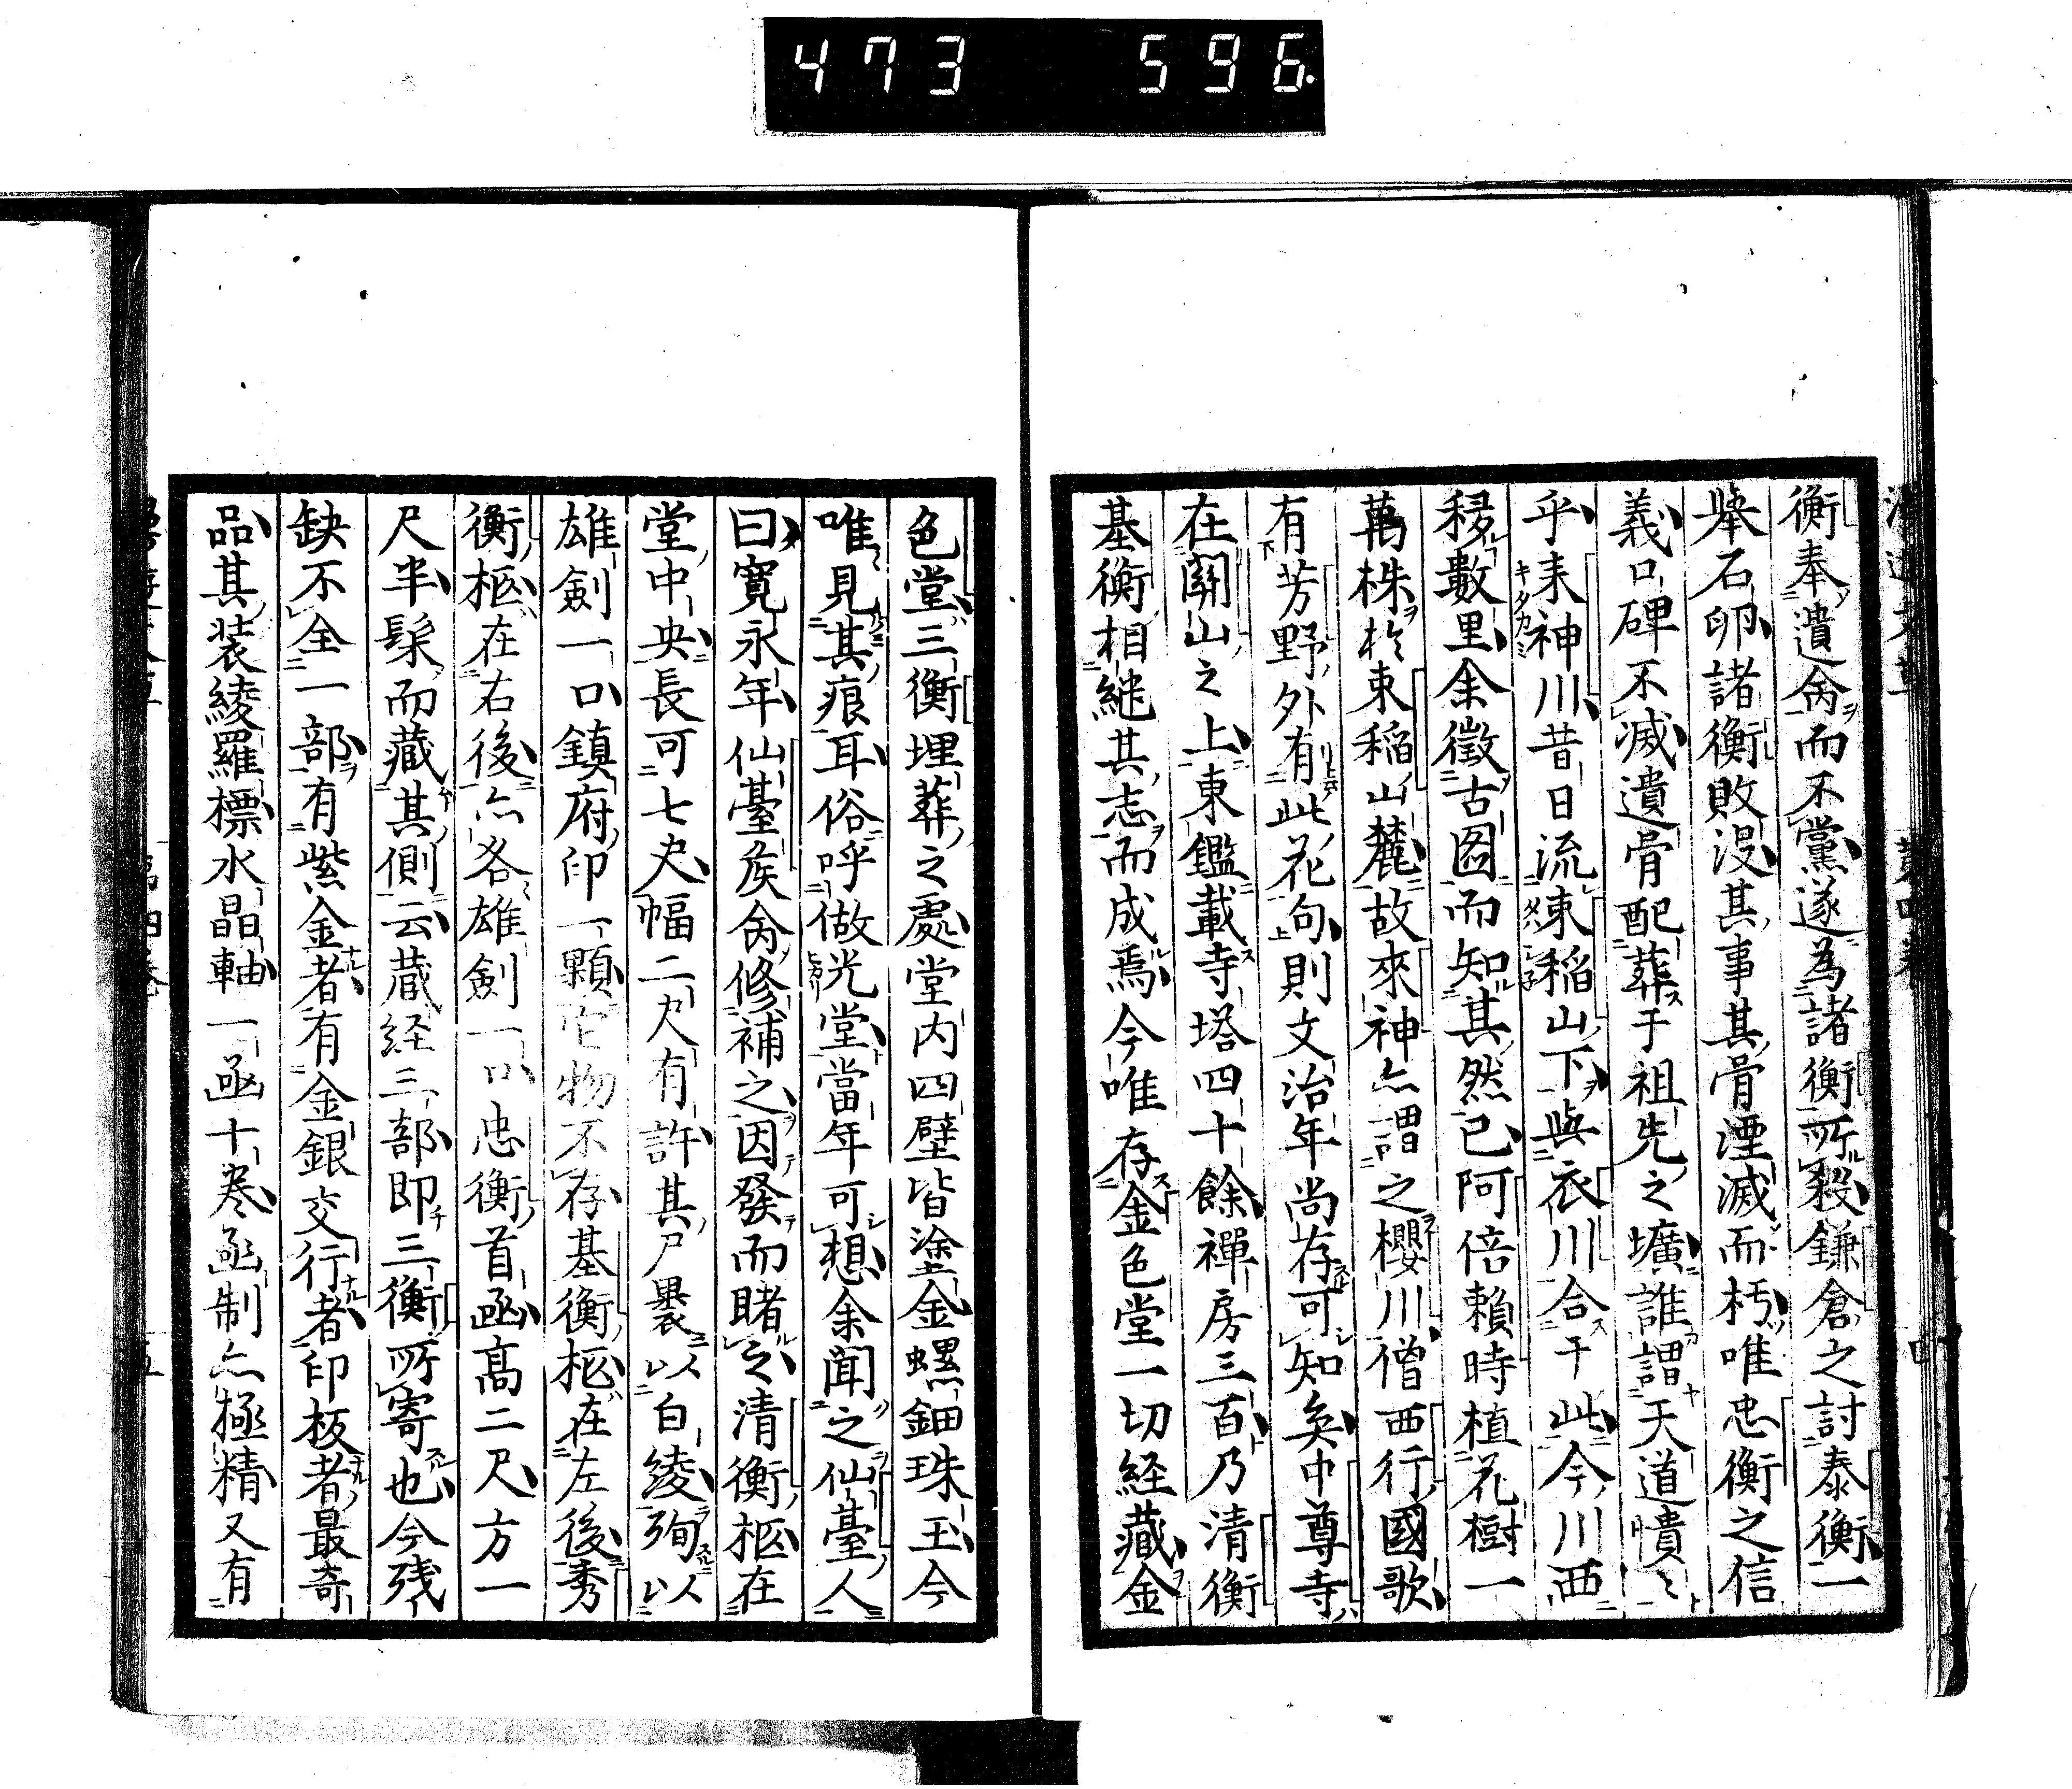 473 596.
衡奉遺命而不黨遂為諸衡所殺鎌倉之討泰衡一
挙石卵諸衡敗没其事其骨湮滅而朽唯忠衡之信
義口碑不滅遺骨配葬于祖先之壙誰謂天道憒〻
乎耒神川昔日流東稲山下與衣川合于此今川西
移數里余徵古圖而知其然已阿倍頼時植花樹一
萬株於東稲山麓故來神亦謂之櫻川僧西行國歌
有芳野外有此花句則文治年尚存可知矣中尊寺
在關山之上東鑑載寺塔四十餘禪房三百乃清衡
基衡相継其志而成焉今唯存金色堂一切経藏金
色堂三衡埋葬之處堂内四壁皆塗金螺鈿珠玉今
唯見其痕耳俗呼做光堂當年可想余聞之仙臺人
曰寛永年仙臺矦命修補之因發而睹之清衡柩在
堂中央長可七尺幅二尺有許其尸裹以白綾殉以
雄劍一口鎮府印一顆它物不存基衡柩在左後秀
衡柩在右後亦各雄劍一口忠衡首函高二尺方一
尺半髹而藏其側云蔵経三部即三衡所寄也今残
缺不全一部有紫金者有金銀交行者印板者最奇
品其装綾羅標水晶軸一函十巻函制亦極精又有